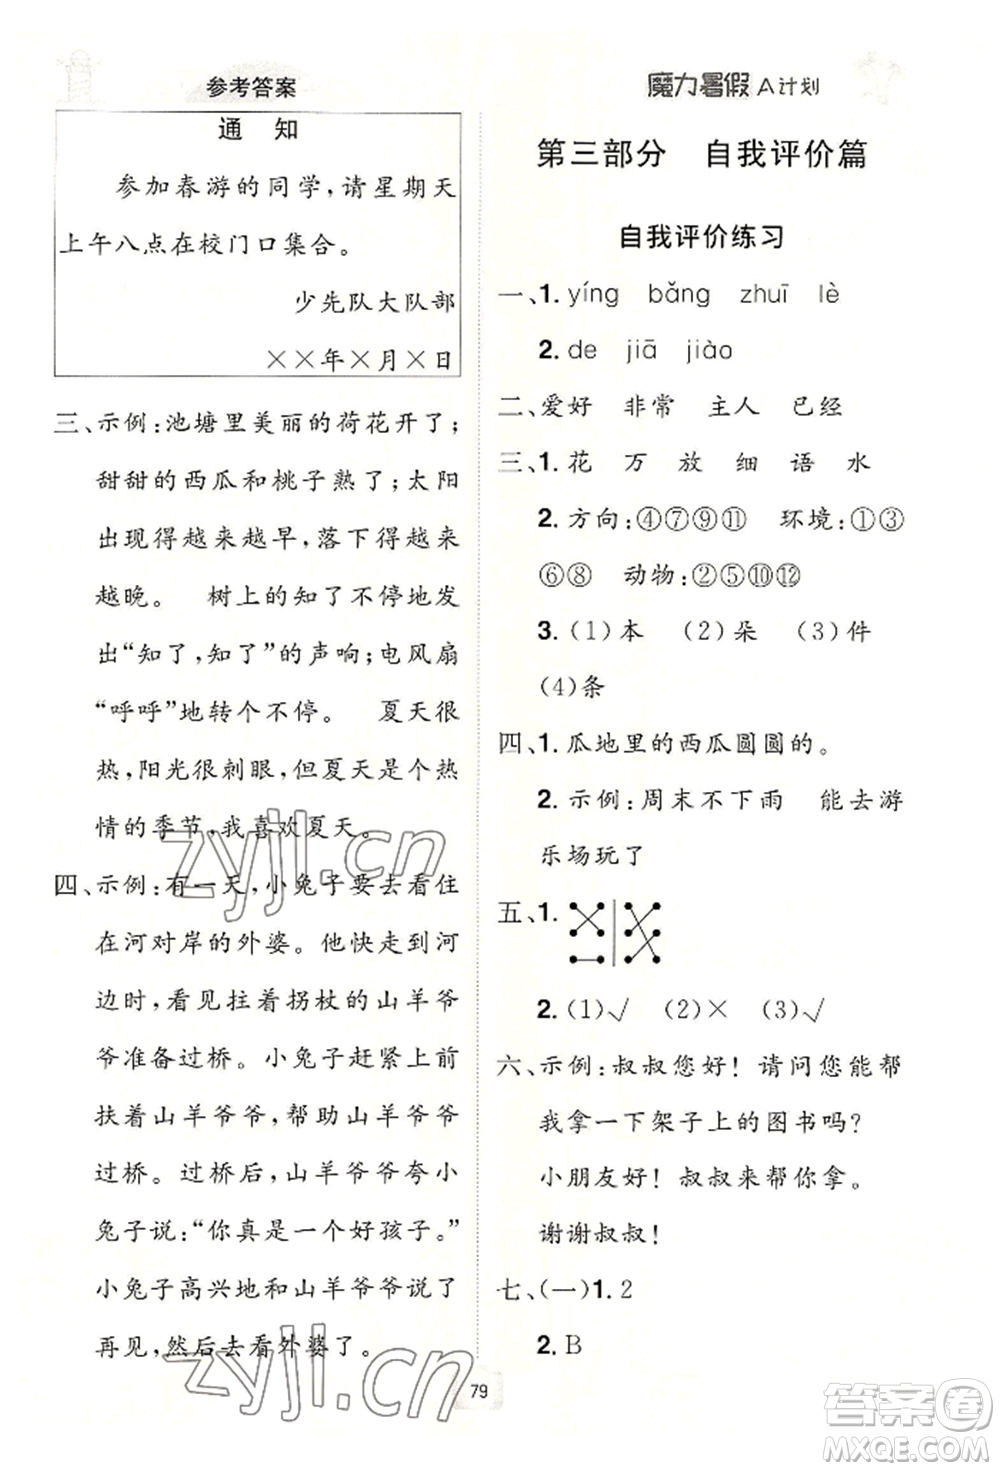 参考答案
通 知
参加春游的同学,请星期天
上午八点在校门口集合。
少先队大队部
××年×月×日
三、示例:池塘里美丽的荷花开了;
甜甜的西瓜和桃子熟了;太阳
出现得越来越早,落下得越来
越晚。 树上的知了不停地发
出“知了,知了”的声响;电风扇
“呼呼”地转个不停。 夏天很
热,阳光很刺眼,但夏天是个热
情的季节,我喜欢夏天。
四、示例:有一天,小兔子要去看住
在河对岸的外婆。他快走到河
边时,看见拄着拐杖的山羊爷
爷准备过桥。小兔子赶紧上前
扶着山羊爷爷,帮助山羊爷爷
过桥。过桥后,山羊爷爷夸小
兔子说:“你真是一个好孩子。”
小兔子高兴地和山羊爷爷说了
再见,然后去看外婆了。
魔力暑假 A计划
第三部分 自我评价篇
自我评价练习
一、1. yíng bǎng zhuī lè
2. de jiā jiào
二、爱好 非常 主人 已经
三、1. 花 万 放 细 语 水
2. 方向:④⑦⑨⑪ 环境:①③
⑥⑧ 动物:②⑤⑩⑫
3. (1)本 (2)朵 (3)件
(4)条
四、1. 瓜地里的西瓜圆圆的。
2. 示例:周末不下雨 能去游
乐场玩了
五、1.
2. (1)√ (2)× (3)√
六、示例:叔叔您好!请问您能帮
我拿一下架子上的图书吗?
小朋友好!叔叔来帮你拿。
谢谢叔叔!
七、(一)1. 2
2. B
79
zyjl.cn
zyjl.cn
答案圈
MXQE.COM